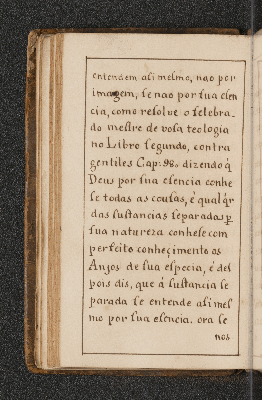 entendem asi mesmo, nao por
imagem, se nao por sua esen
cia, como resolve o selebra-
do mestre de vosa teologia
no Libro segundo, contra
gentiles Cap: 98. dizendo q̃
Deus por sua esencia conhe
se todas as cousas, é qualq̃r
das sustancias separadas p̱
sua natureza conhese com
perfeito conheçimento os
Anjos de sua especia, é des
pois dis, que á sustancia se
parada se entende asi mes
mo por sua esencia. ora se
nos